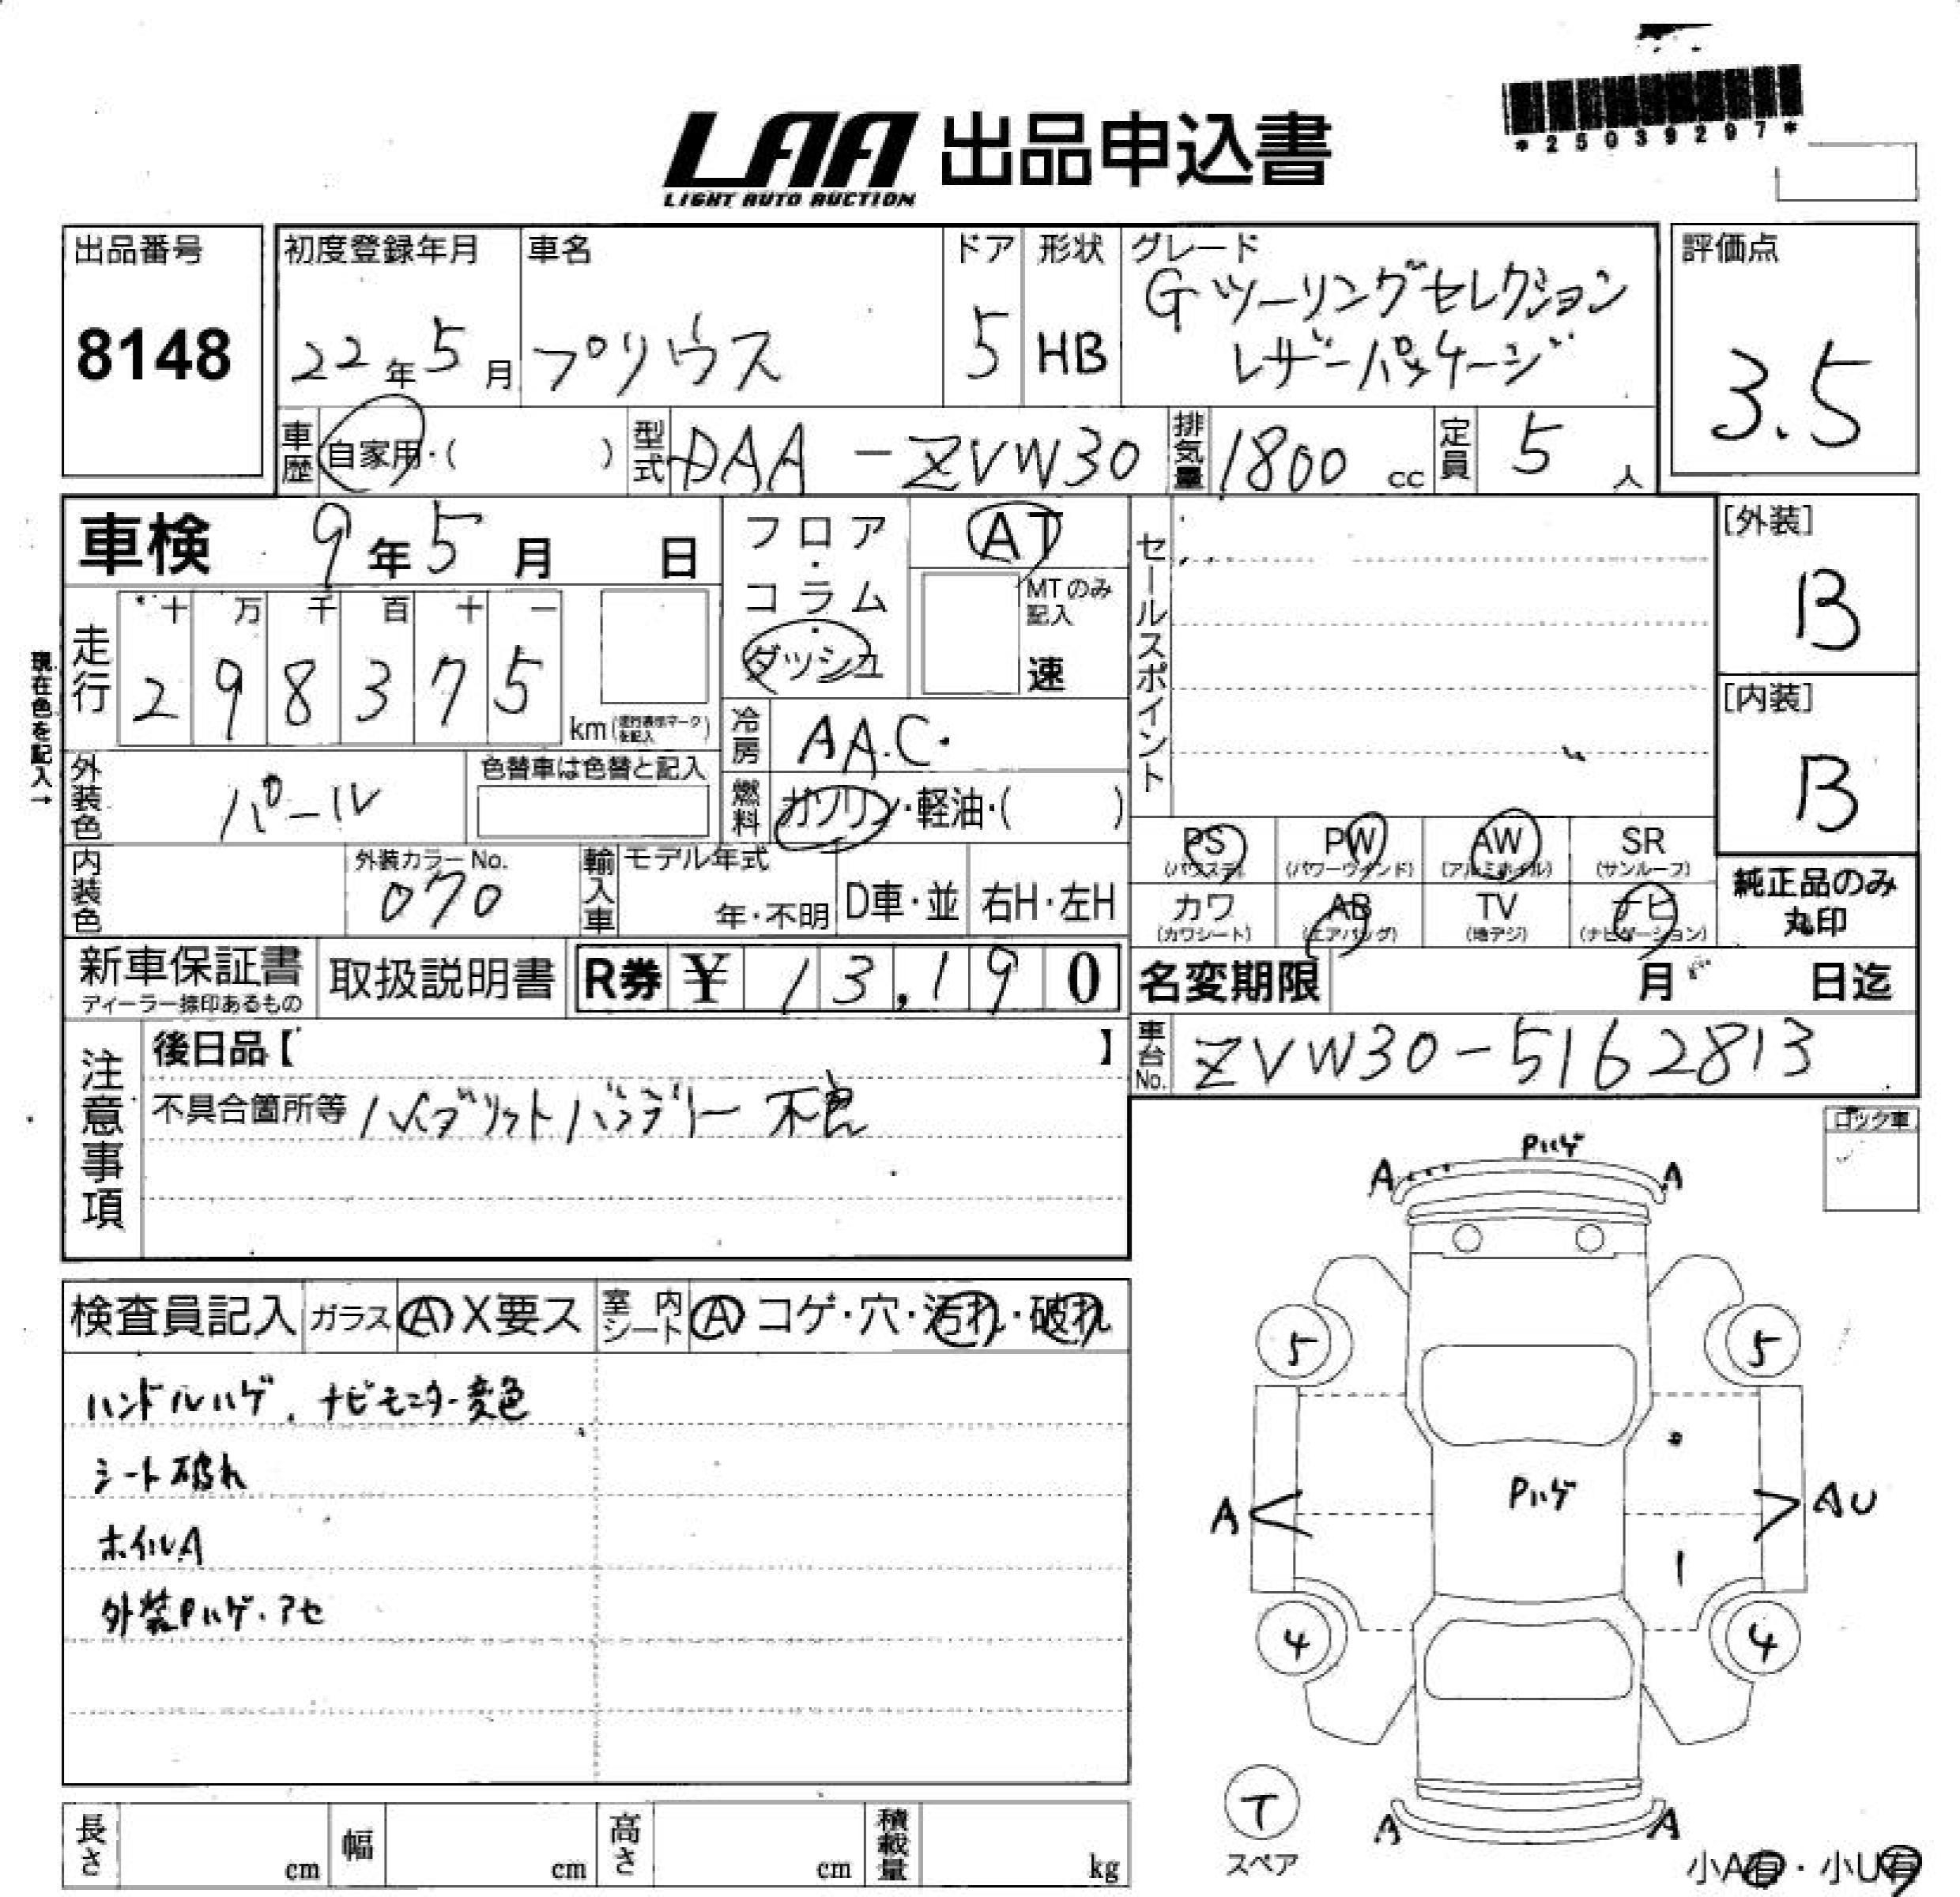 *25039297*
LAA 出品申込書
LIGHT AUTO AUCTION
出品番号
8148
初度登録年月
22年5月
車名
プリウス
ドア
5
形状
HB
グレード
Gツーリングセレクション
レザーパッケージ
評価点
3.5
車歴
自家用・( )
型式
DAA-ZVW30
排気量
1800 cc
定員
5 人
車検 9年5月 日
フロア・コラム・ダッシュ
AT
MTのみ記入
速
セールスポイント
[外装]
B
[内装]
B
現在色を記入→
走行
十 万 千 百 十 一
2 9 8 3 7 5
km(走行表示マークを記入)
冷房
AAC.
燃料
ガソリン・軽油・( )
外装色
パール
色替車は色替と記入
内装色
外装カラーNo.
070
輸入車
モデル年式
年・不明
D車・並
右H・左H
PS
(パワステ)
PW
(パワーウインド)
AW
(アルミホイル)
SR
(サンルーフ)
カワ
(カワシート)
AB
(エアバッグ)
TV
(地デジ)
ナビ
(ナビゲーション)
純正品のみ
丸印
新車保証書
ディーラー捺印あるもの
取扱説明書
R券 ¥ 13,190
名変期限 月 日迄
車台No.
ZVW30-5162813
注意事項
後日品【 】
不具合箇所等 ハイブリットバッテリー 不良
ロック車
検査員記入
ガラス
A X要ス
室内シート
A コゲ・穴・汚れ・破れ
ハンドルハゲ、ナビモニター変色
シート破れ
ホイルA
外装Pハゲ・アセ
Pハゲ
A A
5 5
Pハゲ
A AU
4 4
T
スペア
A A
小A有・小U有
長さ cm
幅 cm
高さ cm
積載量 kg